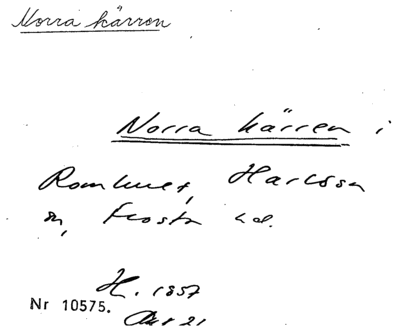 Norra kärren
Norra kärren i
Romhuset, Harlösa
sn, Frosta hd.
H. 1857
Nr 10575.
Akt 21